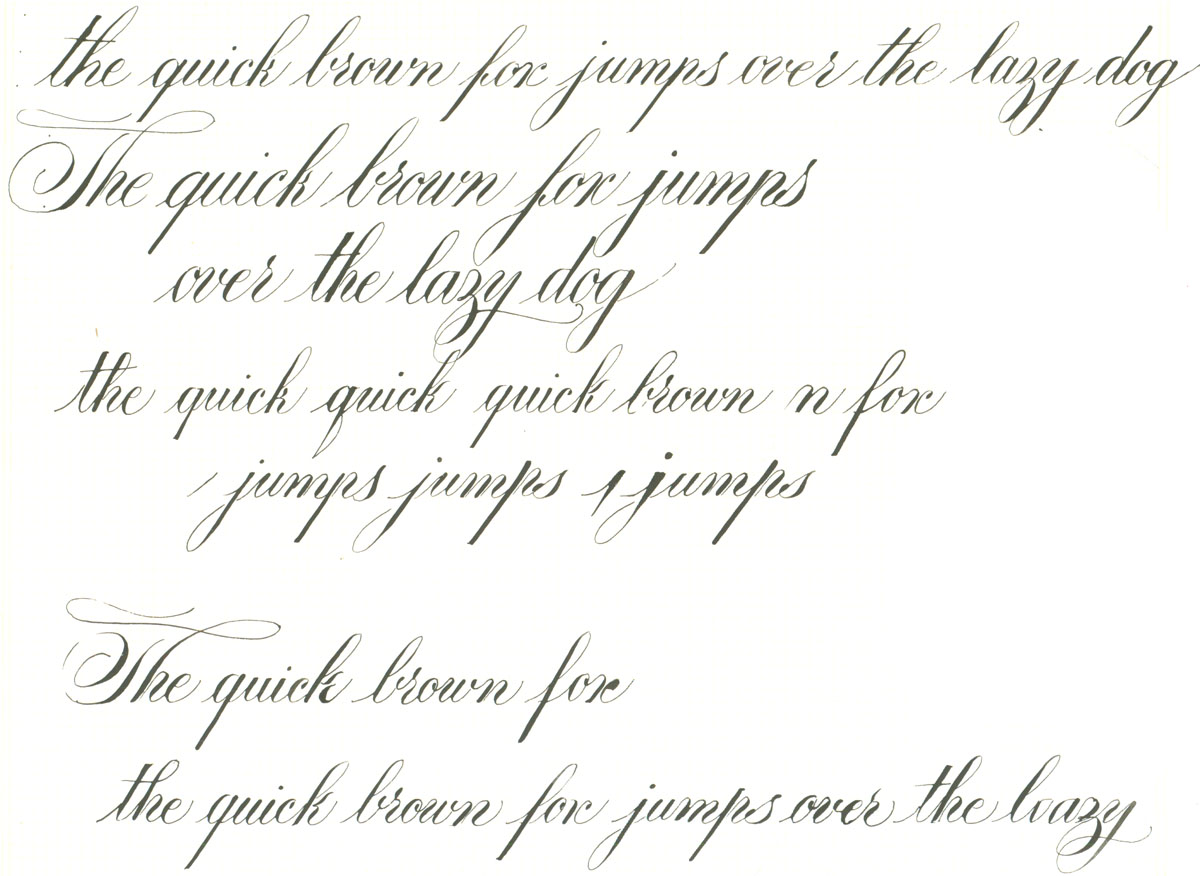 the quick brown fox jumps over the lazy dog
The quick brown fox jumps
over the lazy dog
the quick quick quick brown n fox
jumps jumps 1 jumps
The quick brown fox
the quick brown fox jumps over the loazy